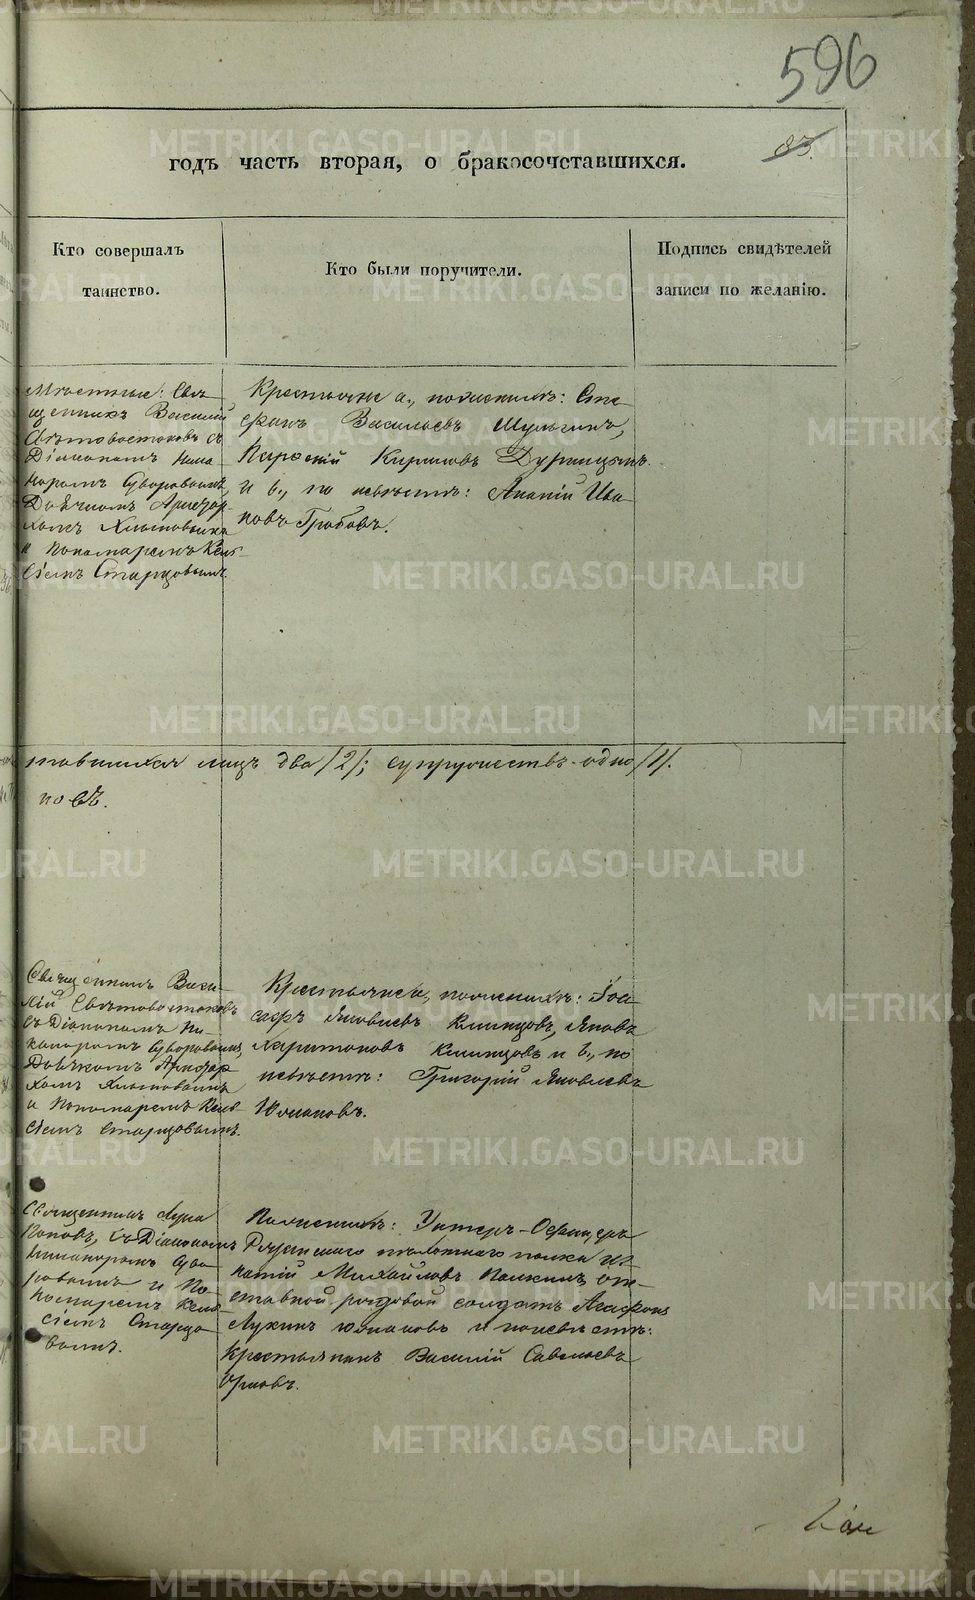 596
83.
годъ часть вторая, о бракосочетавшихся.
Кто совершалъ
таинство.
Кто были поручители.
Подпись свидѣтелей
записи по желанію.
Мѣстные: Свя
щенникъ Василій
Свѣтовостоковъ съ
Діакономъ Ника
норомъ Суворовымъ,
Дьячкомъ Аристар
хомъ Хлыновымъ
и Пономаремъ Кель
сіемъ Старцовымъ.
Крестьяне а., по женихѣ: Сте
фанъ Васильевъ Шульгинъ,
Кириловъ
и б., по невѣстѣ: Ананій Ива
новъ Гробовъ.
лицъ два /2/; супружествъ одно /1/.
Священникъ Васи
лій Свѣтовостоковъ
съ Діакономъ Ни
каноромъ Суворовымъ,
Дьячкомъ Аристар
хомъ Хлыновымъ
и Пономаремъ Кель
сіемъ Старцовымъ.
Крестьяне а., по женихѣ: Іоа
сафъ Яковлевъ Климцовъ, Яковъ
Харитоновъ Климцовъ и б., по
невѣстѣ: Григорій Яковлевъ
Юмановъ.
Священникъ Лука
Поповъ, съ Діакономъ
Никаноромъ Суво
ровымъ и По
номаремъ Кель
сіемъ Старцо
вымъ.
По женихѣ: Унтеръ-Офицеръ
Ряжскаго пѣхотнаго полка Иг
натій Михайловъ от
ставной рядовой солдатъ Агафонъ
Лукинъ Юмановъ и по невѣстѣ:
Крестьянинъ Василій Савельевъ
Орловъ.
METRIKI.GASO-URAL.RU